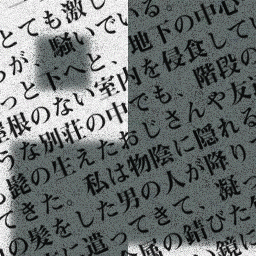 とても激し
が、騒いでいる。
っと下へと、地下の中心
屋根のない室内を侵食してい
うな別荘の中でも、階段の
髭の生えたおじさんや友
てきた。私は物陰に隠れる
の髪をした男の人が降り
に遣ってきて、凝っ
金属の錆びた
い鏡に